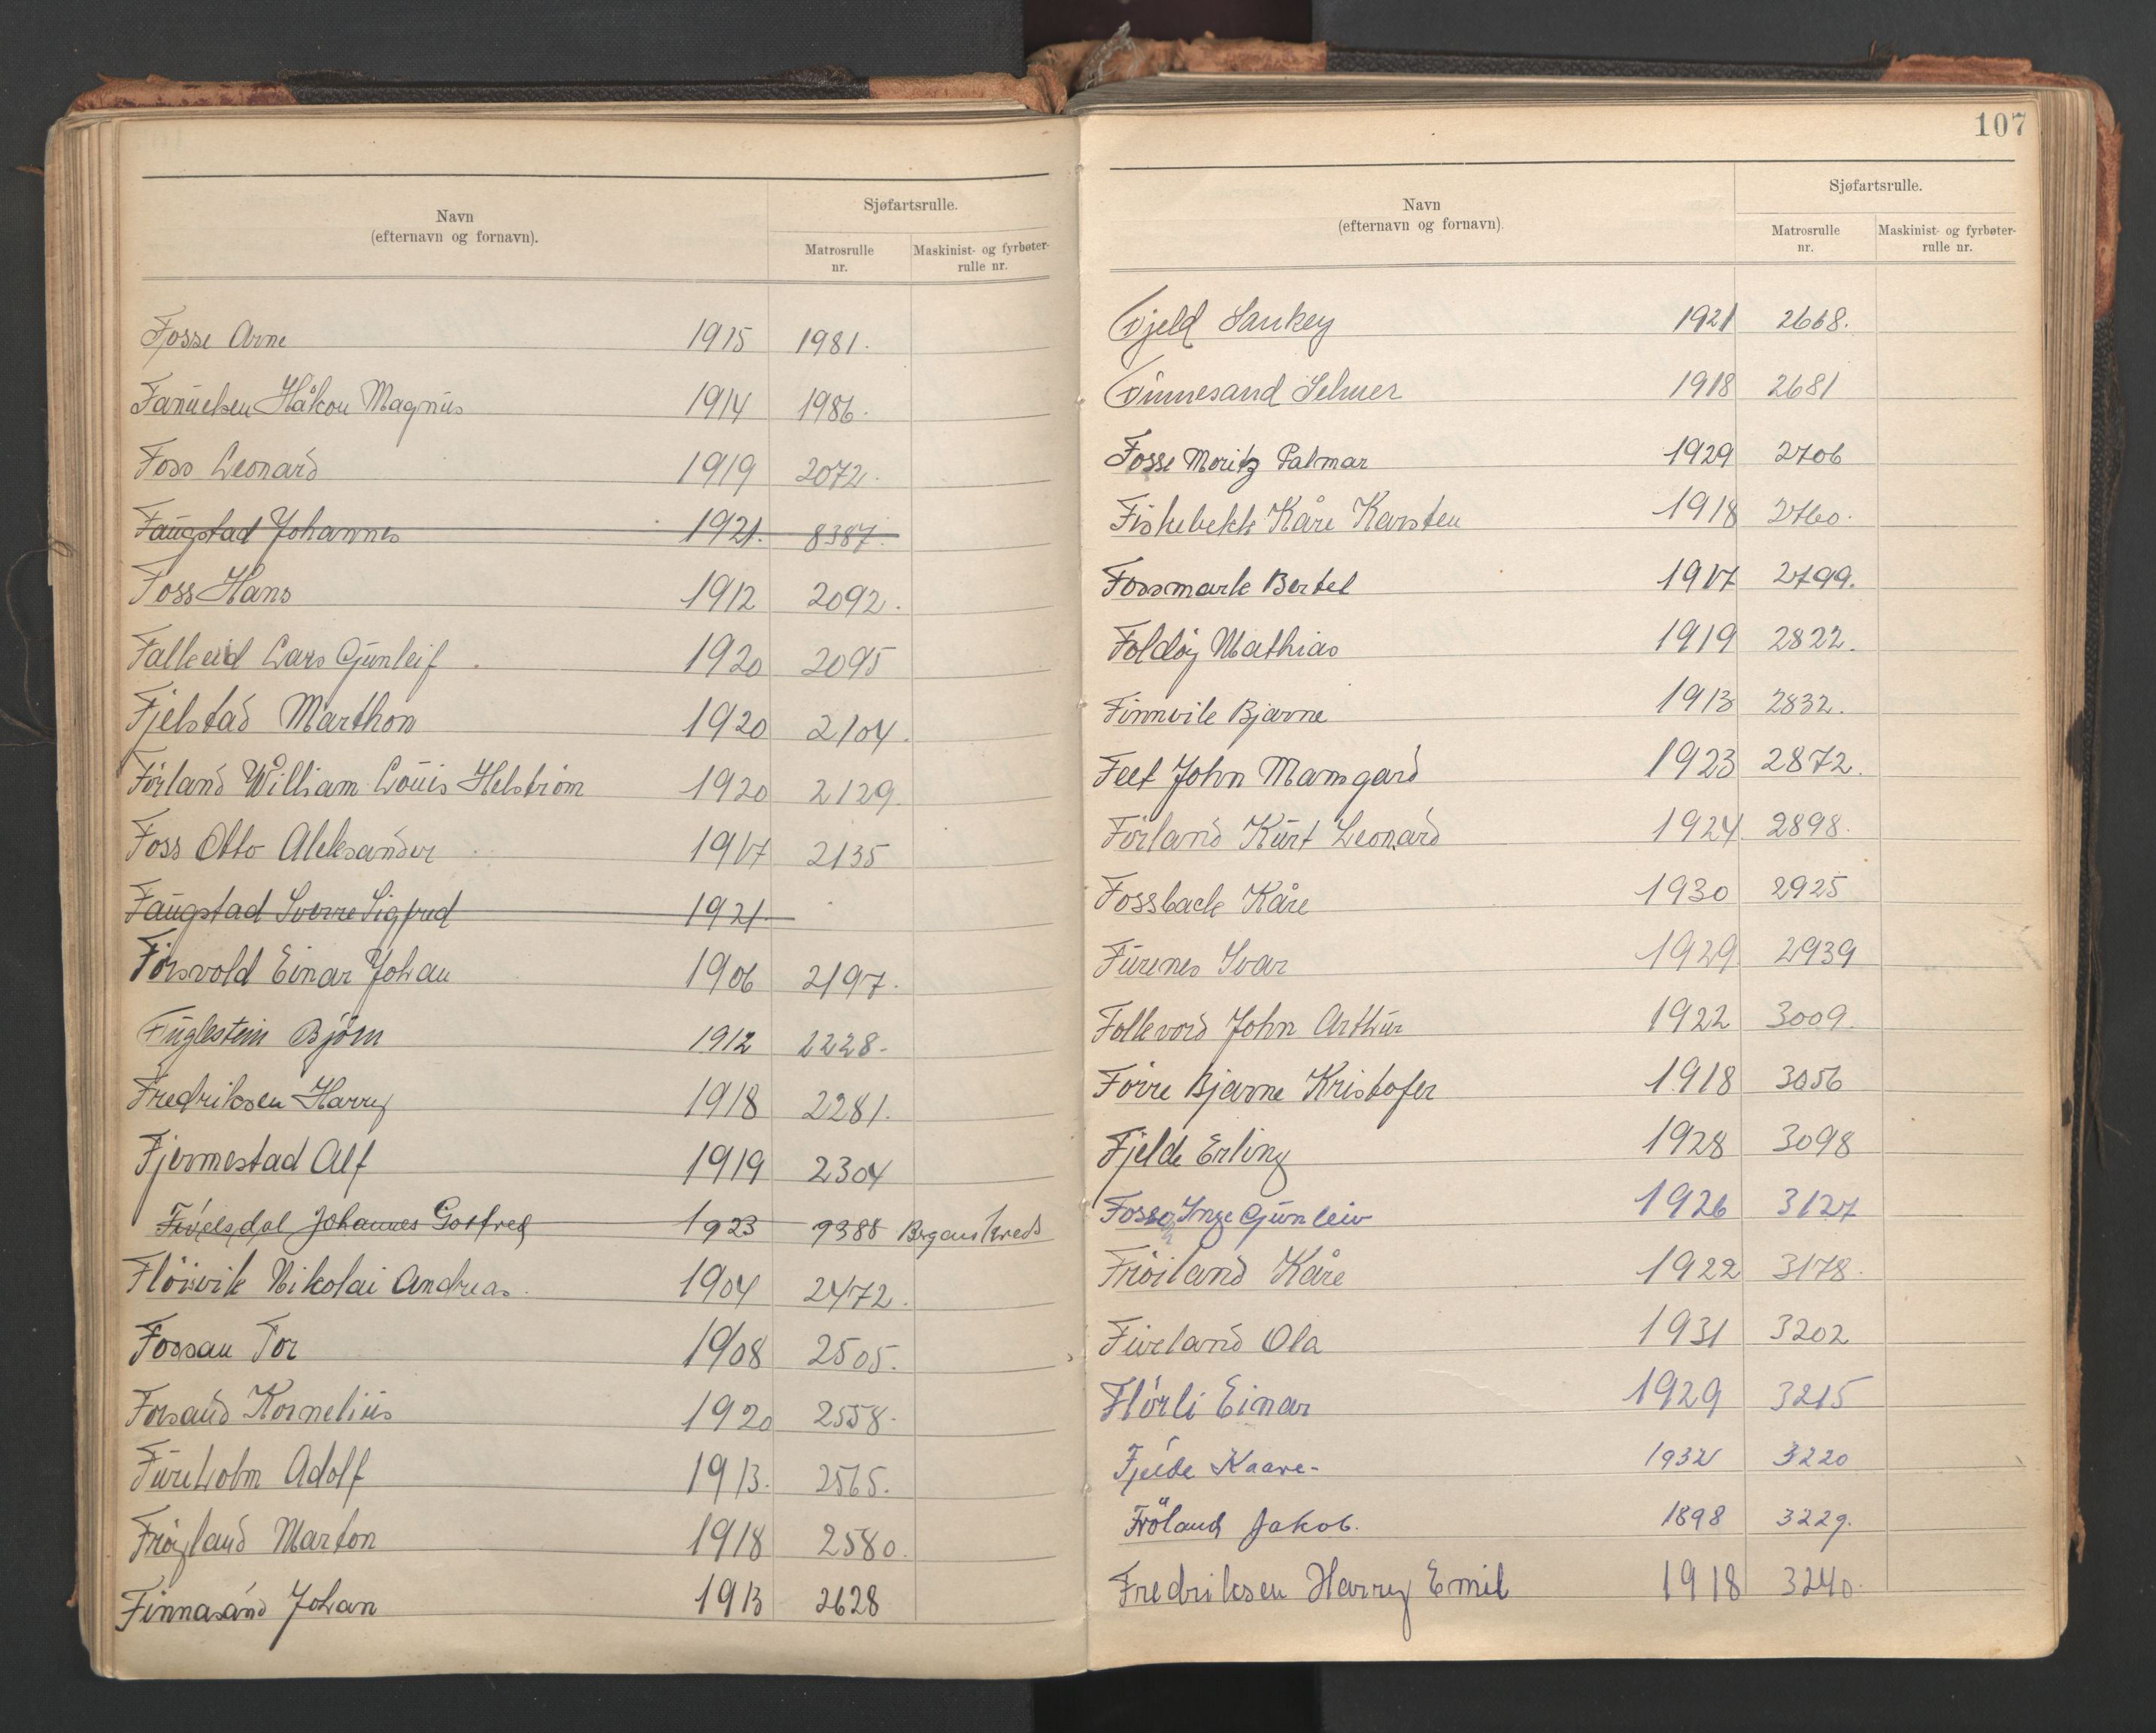 Navn
(efternavn og fornavn).
Sjøfartsrulle.
Matrosrulle
nr.
Maskinist- og fyrbøter-
rulle nr.
Fosse Arne 1915 1981.
Fanuelsen Håkon Magnus 1914 1986.
Foss Leonard 1919 2072.
Faugstad Johannes 1921. 8387.
Foss Hans 1912 2092.
Falkeid Lars Gunleif 1920 2095
Fjelstad Marthon 1920 2104.
Förland William Louis Helström 1920 2129.
Foss Otto Aleksander 1917 2135
Faugstad Sverre Sigfred 1921
Forsvold Einar Johan 1906 2197.
Fuglestein Björn 1912 2228.
Fredriksen Harry 1918 2281.
Fjermestad Alf 1919 2304
Johannes Gotfred 1923 9388 Bergens kreds
Flöisvik Nikolai Andreas. 1904 2472.
Fossan Tor 1908 2505.
Forsand Kornelius 1920 2558.
Fureholm Adolf 1913. 2565.
Fröyland Marton 1918 2580.
Finnasand Johan 1913 2628
107
Navn
(efternavn og fornavn).
Sjøfartsrulle.
Matrosrulle
nr.
Maskinist- og fyrbøter-
rulle nr.
Fjeld Sankey 1921 2668.
Finnesand Selmer 1918 2681
Fosse Moritz Palmar 1929 2706
Fiskebekk Kåre Karsten 1918 2760.
Fossmark Bertel 1917 2799.
Foldöy Mathias 1919 2822.
Finnvik Bjarne 1913 2832.
Feet John Mansgard 1923 2872.
Förland Kurt Leonard 1924 2898.
Fossback Kåre 1930 2925
Furenes Ivar 1929 2939
Follevord John Arthur 1922 3009.
Förre Bjarne Kristofer 1918 3056
Fjelde Erling 1928 3098
Fosse, Inge Gunleiv 1926 3127
Fröiland Kåre 1922 3178.
Fiveland Ola 1931 3202
Flörli Einar 1929 3215
Fjelde Kaare- 1932 3220
Fröland Jakob. 1898 3229.
Fredriksen Harry Emil 1918 3240.